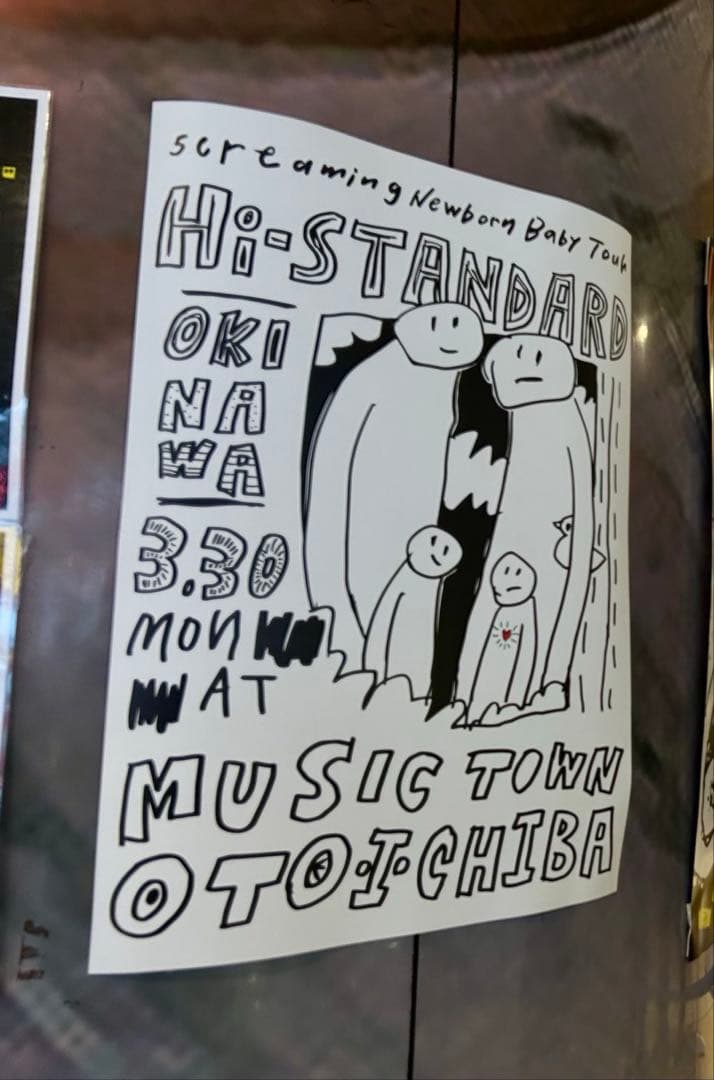 screaming Newborn Baby Tour
Hi-STANDARD
OKI
NA
WA
3.30
MON
AT
MUSIC TOWN
OTO・I・CHIBA